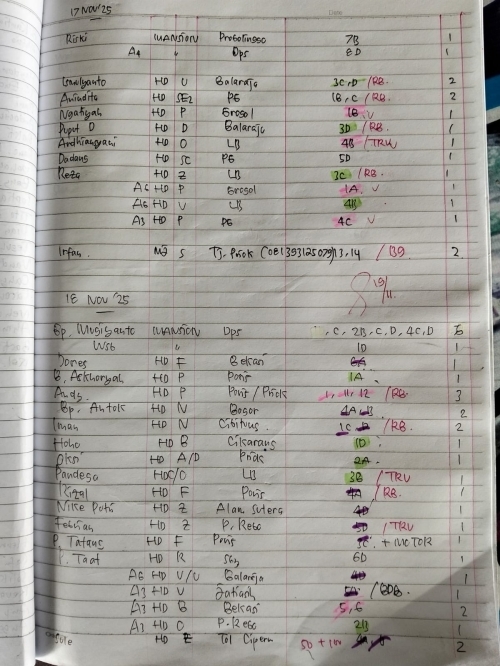 17 NOV '25
Riski MANSION Probolinggo 7B 1
A4 " Dps 6D 1
Ismiyanto HD U Balaraja 3C,D /RB. 2
Anindita HD SE2 PG 1B, C /RB. 2
Ngatiyah HD P Grogol 1B. V 1
Puput D HD D Balaraja 3D /RB. 1
Ardhiansyani HD O LB 4B /TRU 1
Dadang HD SC PG 5D 1
Reza HD Z LB 3C /RB. 1
A6 HD P Grogol 1A. V 1
A6 HD V LB 4B 1
A3 HD P PG 4C V 1
Irfan. MJ S Tj. Priok (081393125079) 13, 14 /B9 2
19/11.
18 NOV '25
Bp. Mugiyanto MANSION Dps , C, 2B, C, D, 4C, D
Wsb " 1D 1
Dones HD F Bekasi 1
B. Askhoryah HD P Poris 1A 1
Andy HD P Poris / Priok 1, 11, 12 /RB. 3
Bp. Antok HD N Bogor 2
Iman HD N Cibitung 1C, /RB. 2
Hoho HD B Cikarang 1D 1
Oksi HD A/D Priok 2A 1
Pandega HD C/O LB 3B /TRU 1
Rizal HD F Poris /RB. 1
Nike Putri HD Z Alam Sutera 4D 1
Febrian HD Z P. Rebo /TRU 1
P. Tatang HD F Poris 1
P. Taat HD R Sby 6D 1
A6 HD V/U Balaraja 1
A3 HD V Jatiasih /BDB. 1
A3 HD B Bekasi 5, 6 2
A3 HD O P. Rebo 2B 1
HD Z Tol Cipern 50 + 100 2